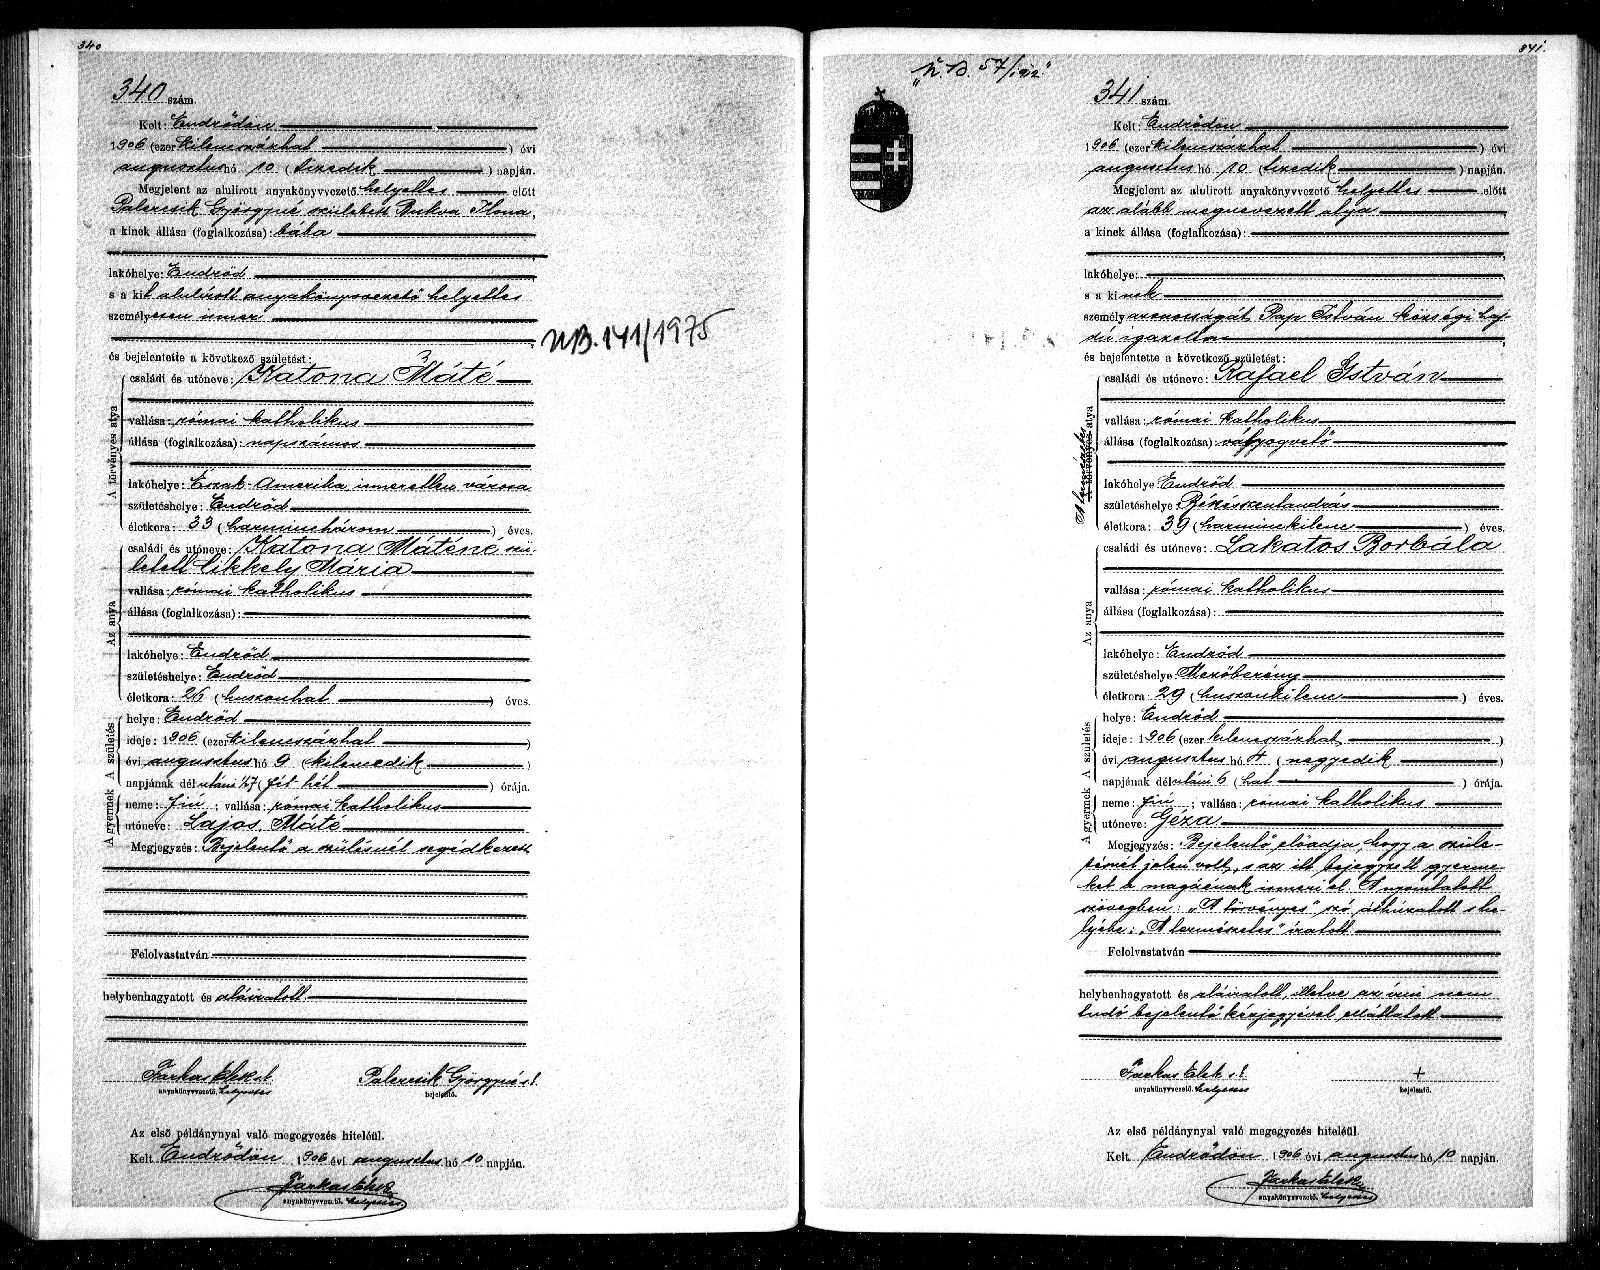 340
340 szám.
Kelt: Endrődön
1906 (ezerkilencszázhat) évi
augusztus hó 10 (tizedik) napján.
Megjelent az alulirott anyakönyvvezető helyettes előtt
Palercsik Györgyné született Dukva Ilona,
a kinek állása (foglalkozása): bába
lakóhelye: Endrőd
s a kit alulirott anyakönyvvezető helyettes
személyesen ismer
és bejelentette a következő születést:
A törvényes atya
családi és utóneve: Katona Máté
vallása: római katholikus
állása (foglalkozása): napszámos
lakóhelye: Észak-Amerika, ismeretlen városa
születéshelye: Endrőd
életkora: 33 (harminchárom) éves.
Az anya
családi és utóneve: Katona Máténé szü-
letett Cikkely Mária
vallása: római katholikus
állása (foglalkozása):
lakóhelye: Endrőd
születéshelye: Endrőd
életkora: 26 (huszonhat) éves.
A gyermek A születés
helye: Endrőd
ideje: 1906 (ezerkilencszázhat)
évi augusztus hó 9 (kilencedik)
napjának délutáni 1/27 (fél hét) órája.
neme: fiú; vallása: római katholikus
utóneve: Lajos, Máté
Megjegyzés: Bejelentő a szülésnél segédkezett
Felolvastatván
helybenhagyatott és aláiratott
Farkas Elek s.k. Palercsik Györgyné s.k.
anyakönyvvezető. helyettes bejelentő.
Az első példánynyal való megegyezés hiteléül.
Kelt Endrődön 1906 évi augusztus hó 10 napján.
Farkas Elek
anyakönyvvezető. helyettes
UB. 141/1975
341.
"U.B. 57/1912"
341 szám.
Kelt: Endrődön
1906 (ezerkilencszázhat) évi
augusztus hó 10 (tizedik) napján.
Megjelent az alulirott anyakönyvvezető helyettes előtt
az alább megnevezett atya
a kinek állása (foglalkozása):
lakóhelye:
s a kinek
személyazonosságát Pap István községi haj-
dú igazolta
és bejelentette a következő születést:
A természetes
A törvényes atya
családi és utóneve: Rafael István
vallása: római katholikus
állása (foglalkozása): vályogvető
lakóhelye Endrőd
születéshelye: Békésszentandrás
életkora: 39 (harminckilenc) éves.
Az anya
családi és utóneve: Lakatos Borbála
vallása: római katholikus
állása (foglalkozása):
lakóhelye: Endrőd
születéshelye Mezőberény
életkora: 29 (huszonkilenc) éves.
A gyermek A születés
helye: Endrőd
ideje: 1906 (ezerkilencszázhat)
évi augusztus hó 4 (negyedik)
napjának délutáni 6 (hat) órája.
neme: fiú; vallása: római katholikus.
utóneve: Géza
Megjegyzés: Bejelentő előadja, hogy a szüle-
tésnél jelen volt, s az itt bejegyzett gyerme-
ket a magáénak ismeri el. A nyomtatott
szövegben: „A törvényes" szó áthúzatott s he-
lyébe: „A természetes" iratott
Felolvastatván
helybenhagyatott és aláiratott, illetve az írni nem
tudó bejelentő kézjegyével elláttatott
Farkas Elek s.k. +
anyakönyvvezető. helyettes bejelentő.
Az első példánynyal való megegyezés hiteléül.
Kelt Endrődön 1906 évi augusztus hó 10 napján.
Farkas Elek
anyakönyvvezető. helyettes